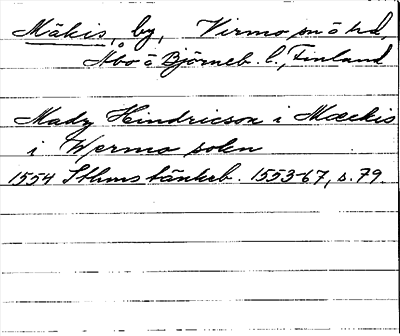 Mäkis, by, Virmo sn o hd,
Åbo o Björneb. l., Finland
Mady Hindricson i Mækis
i Wermo sokn
1554 Sthms tänkeb. 1553-67, s. 79.